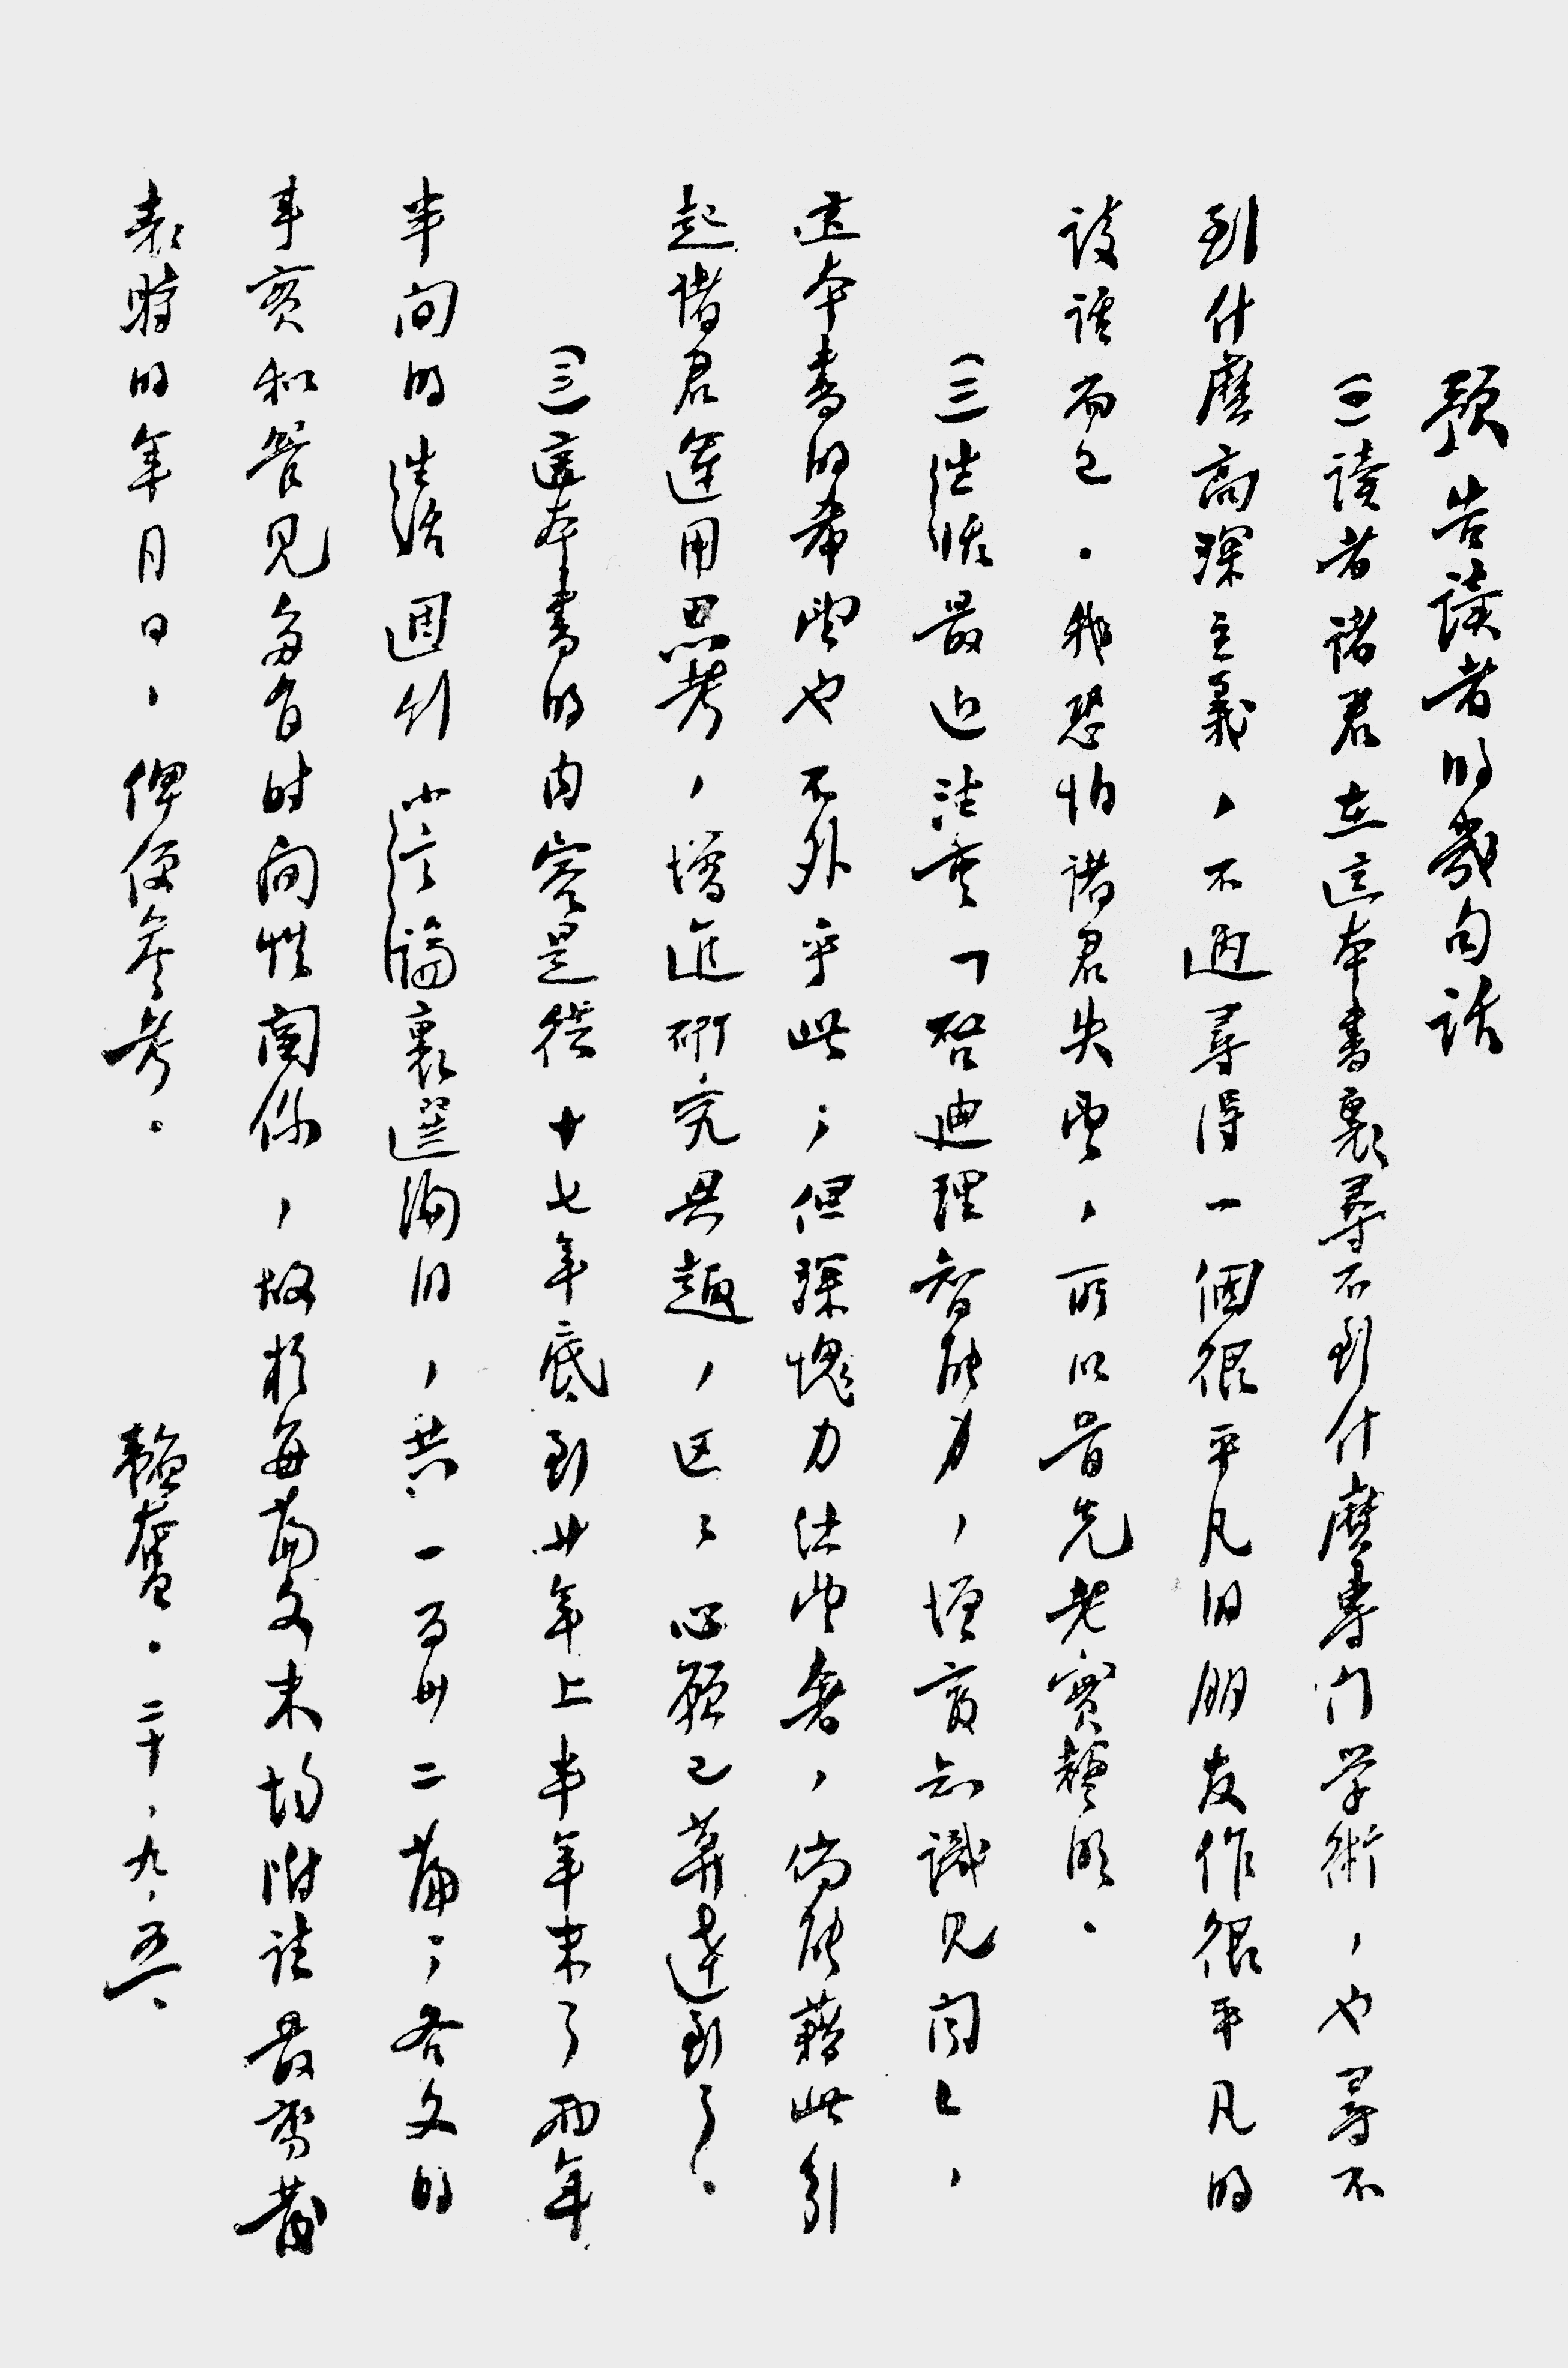 預告讀者的幾句話
(一)讀者諸君在這本書裏尋不到什麼專门学術，也尋不
到什麼高深主義，不過尋得一個很平凡的朋友作很平凡的
談話而已．我恐怕諸君失望，所以首先老實聲明．
(二)生活最近注重「啓迪理智能力，增富知識見聞」，
這本書的希望也不外乎此；但深愧力仕望奢，倘能藉此引
起諸君運用思考，增進研究興趣，区々心願已算達到了．
(三)這本書的內容是從十七年底到廿年上半年末了兩年
半间的生活週刊小言論裏選編的，共一百卅二篇；各文的
事實和管見多有时间性関係，故於每篇文末均附註最初發
表時的年月日，俾便參考．
韜奮．二十，九，五．